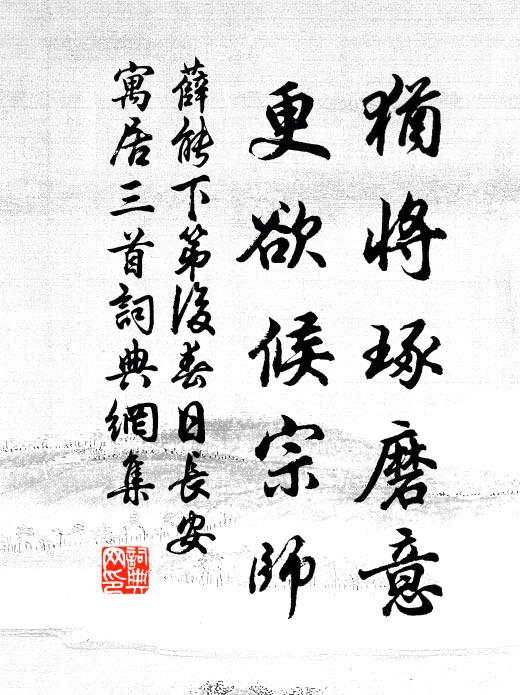 猶將琢磨意
更欲候宗師
薛能下第後春日長安
寓居三首詞典網集
詞典
网印